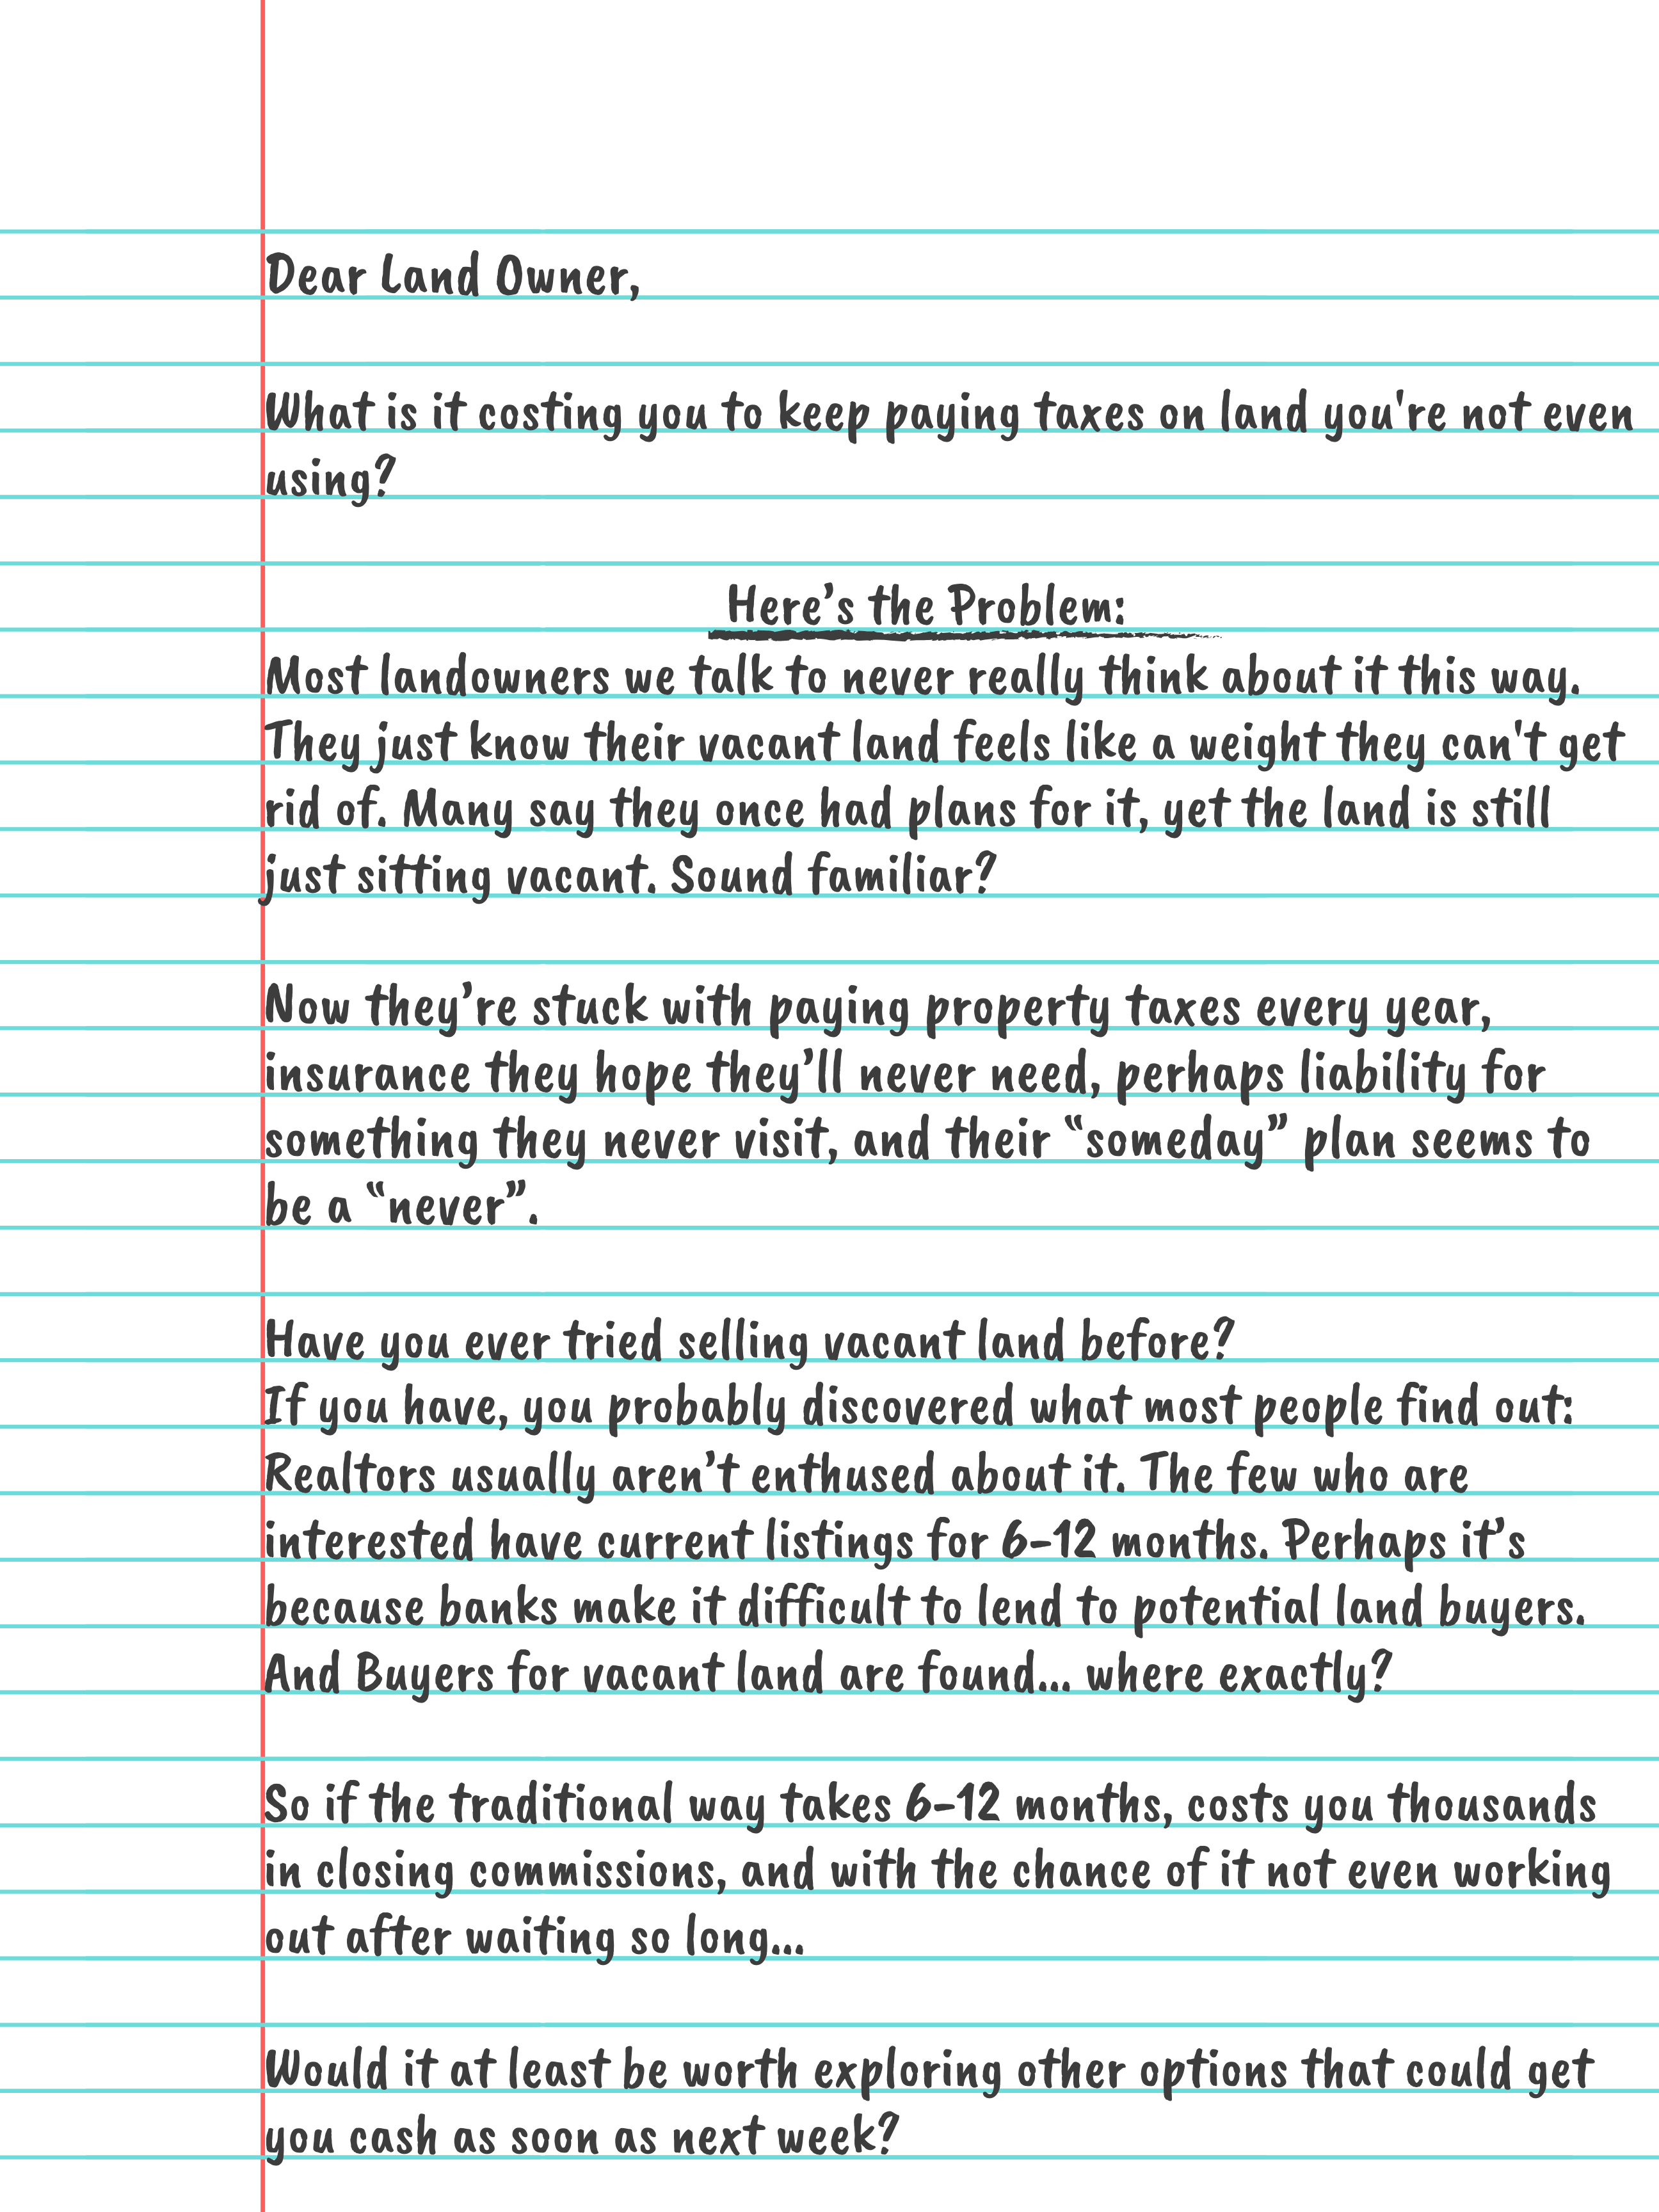 Dear Land Owner,
What is it costing you to keep paying taxes on land you're not even
using?
Here’s the Problem:
Most landowners we talk to never really think about it this way.
They just know their vacant land feels like a weight they can't get
rid of. Many say they once had plans for it, yet the land is still
just sitting vacant. Sound familiar?
Now they’re stuck with paying property taxes every year,
insurance they hope they’ll never need, perhaps liability for
something they never visit, and their “someday” plan seems to
be a “never”.
Have you ever tried selling vacant land before?
If you have, you probably discovered what most people find out:
Realtors usually aren’t enthused about it. The few who are
interested have current listings for 6-12 months. Perhaps it’s
because banks make it difficult to lend to potential land buyers.
And Buyers for vacant land are found... where exactly?
So if the traditional way takes 6-12 months, costs you thousands
in closing commissions, and with the chance of it not even working
out after waiting so long...
Would it at least be worth exploring other options that could get
you cash as soon as next week?